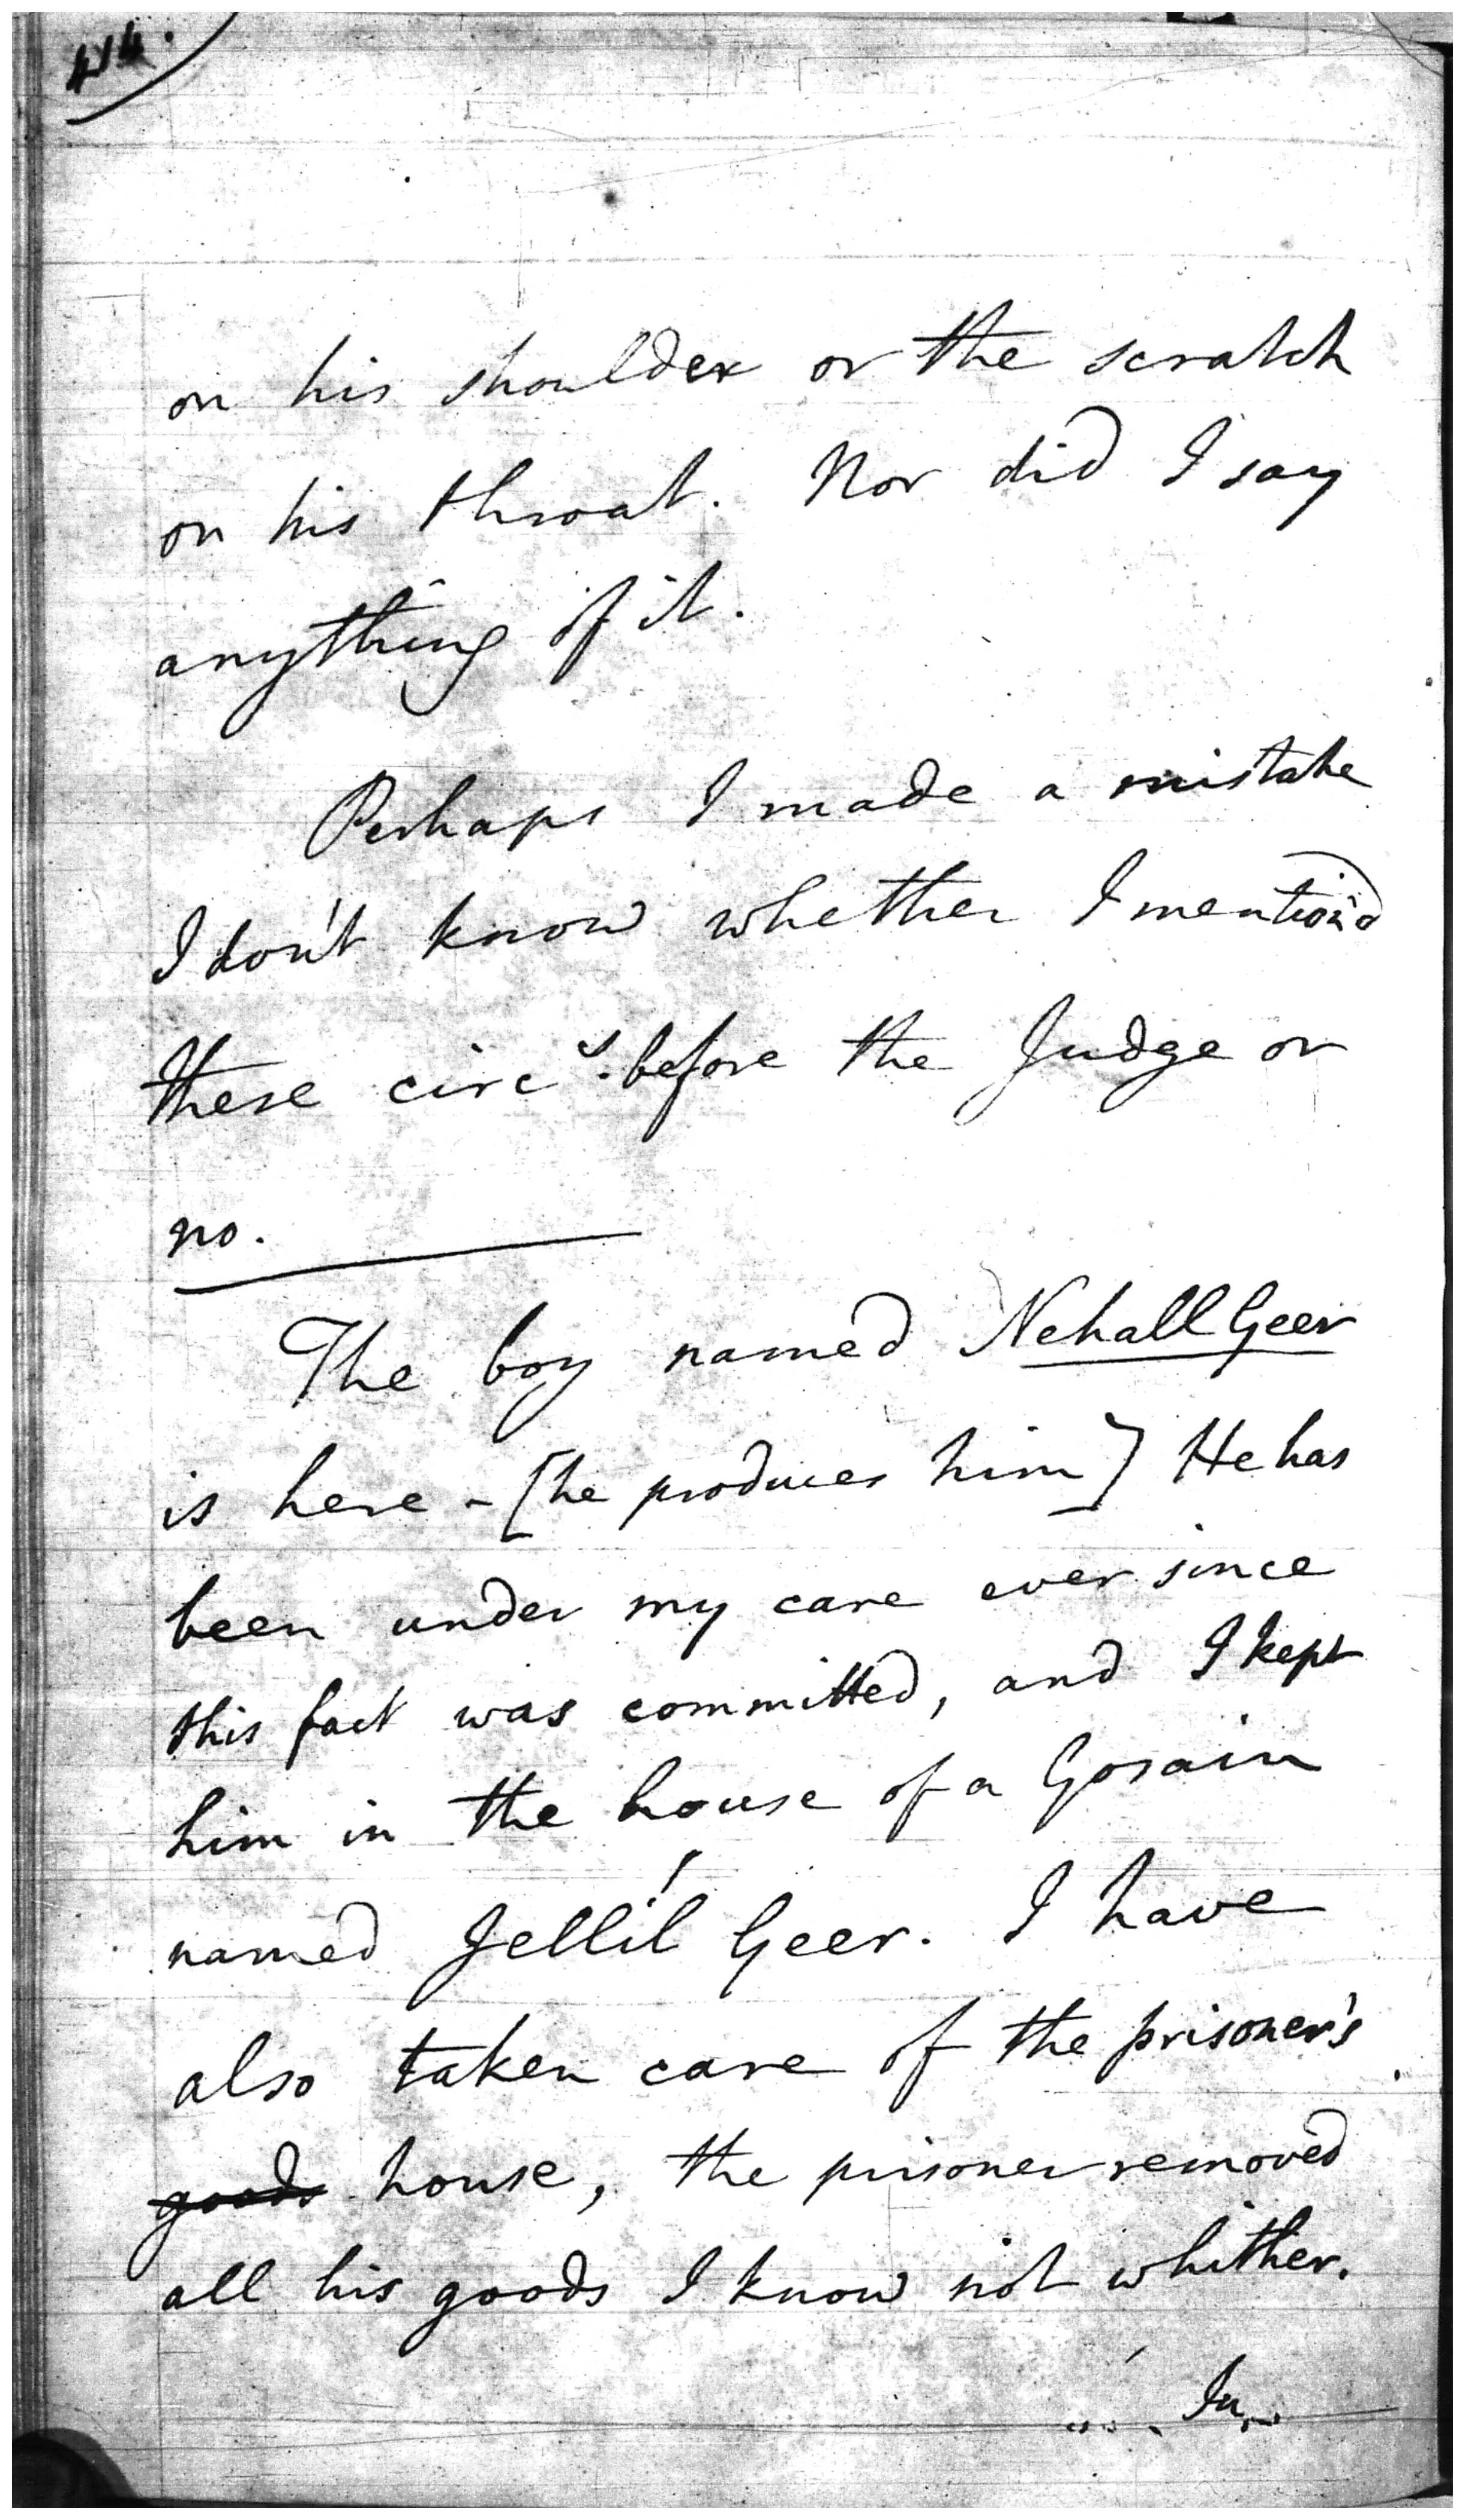 414.
on his shoulder or the scratch
on his throat. Nor did I say
anything of it.
Perhaps I made a mistake
I don't know whether I mention'd
these circˢ. before the Judge or
no.
The boy named Nehall Geer
is here - [he produces him] He has
been under my care ever since
this fact was committed, and I kept
him in the house of a Gosain
named Jellil Geer. I have
also taken care of the prisoner's
goods house, the prisoner removed
all his goods I know not whither.
In